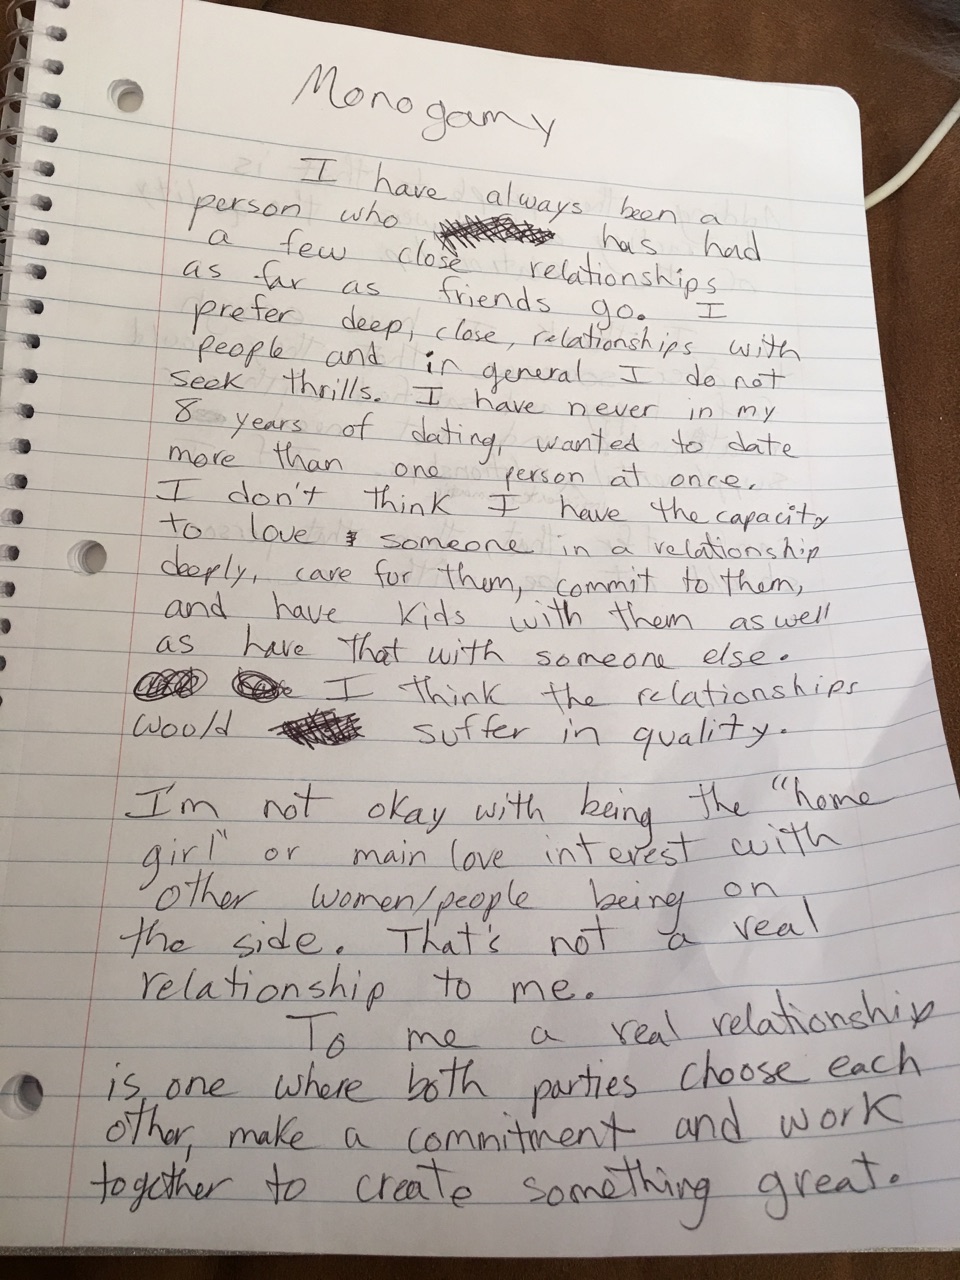 Monogamy
I have always been a
person who has had
a few close relationships
as far as friends go. I
prefer deep, close, relationships with
people and in general I do not
seek thrills. I have never in my
8 years of dating, wanted to date
more than one person at once.
I don't think I have the capacity
to love someone in a relationship
deeply, care for them, commit to them,
and have kids with them as well
as have that with someone else.
I think the relationships
would suffer in quality.
I'm not okay with being the "home
girl" or main love interest with
other women/people being on
the side. That's not a real
relationship to me.
To me a real relationship
is, one where both parties choose each
other, make a commitment and work
together to create something great.